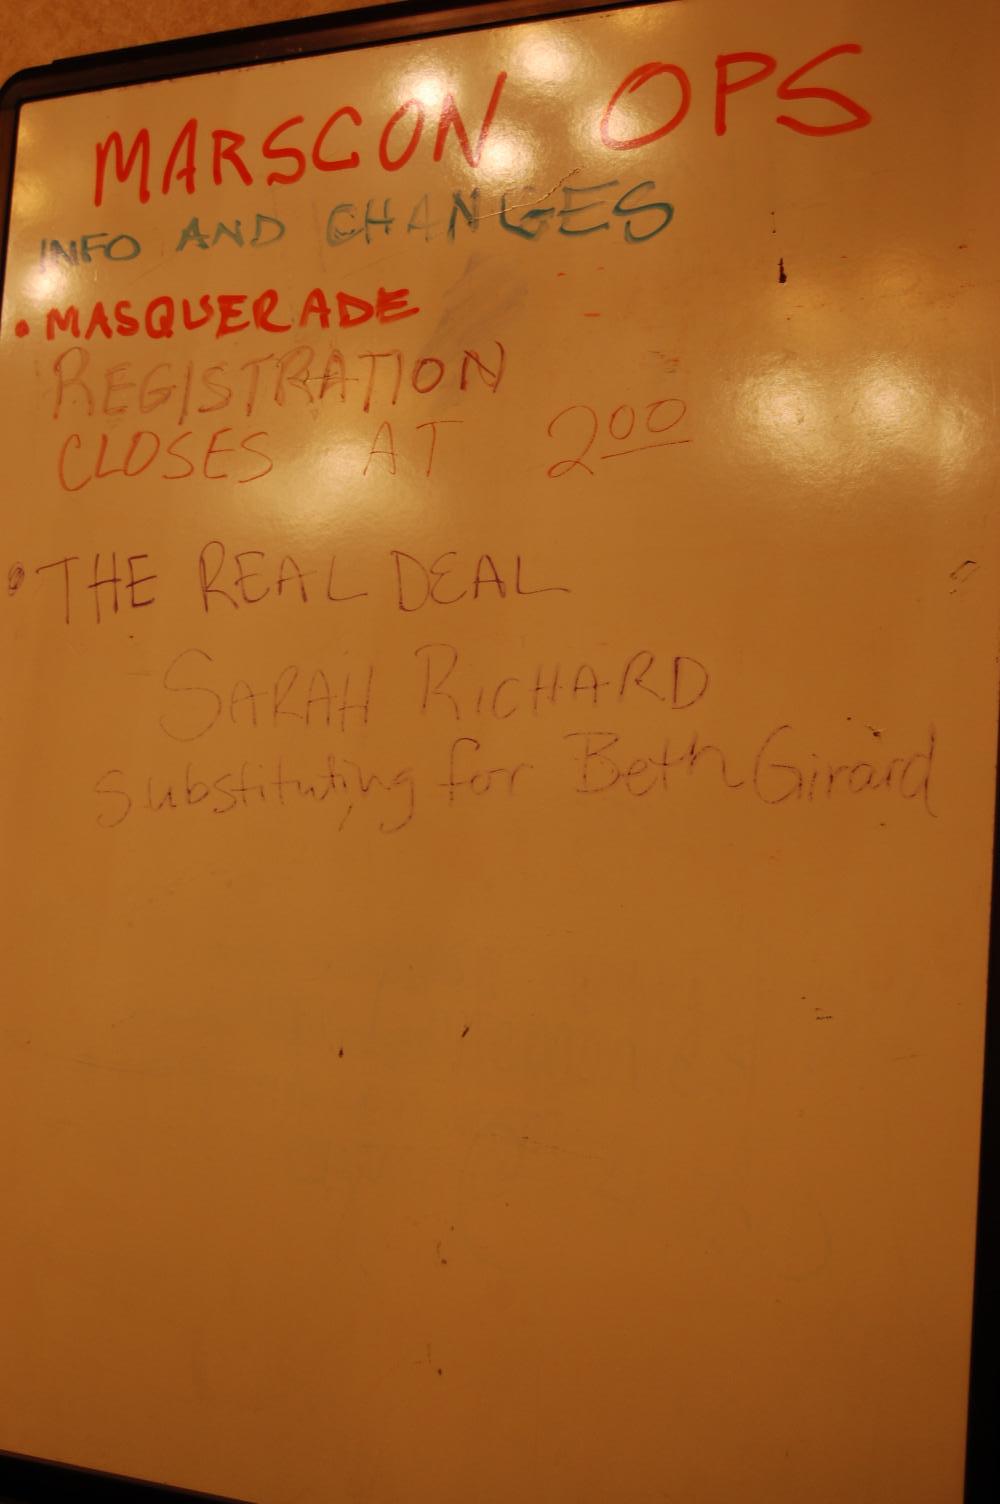 MARSCON OPS
INFO AND CHANGES
• MASQUERADE
REGISTRATION
CLOSES AT 200
• THE REAL DEAL
SARAH RICHARD
Substituting for Beth Girard